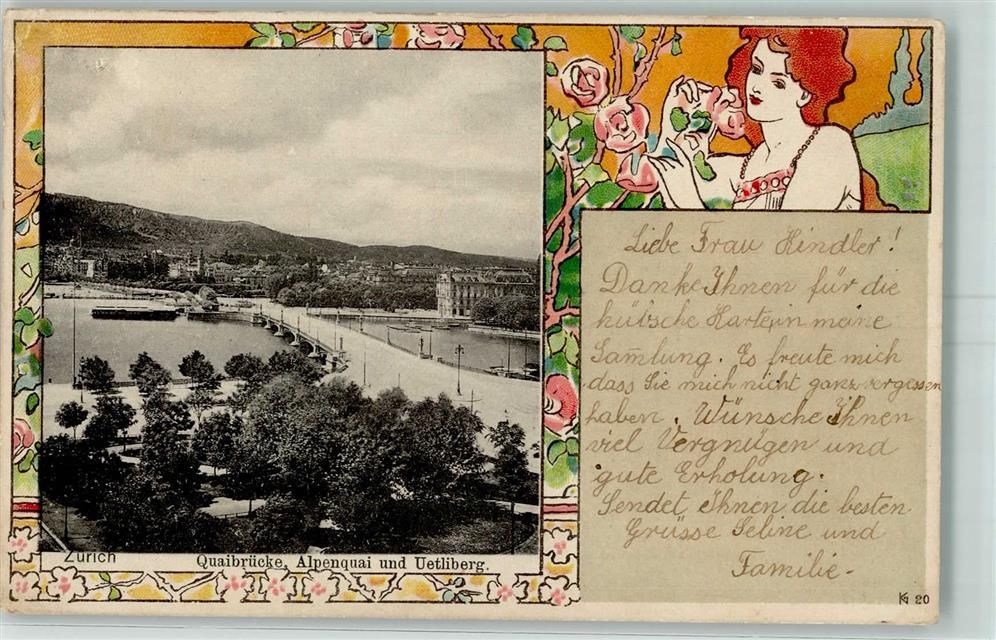 Liebe Frau Hindler!
Danke Ihnen für die
hübsche Karte in meine
Sam̅lung. Es freute mich
dass Sie mich nicht ganz vergessen
haben. Wünsche Ihnen
viel Vergnügen und
gute Erholung.
Sendet Ihnen die besten
Grüsse Seline und
Familie-
Zürich
Quaibrücke, Alpenquai und Uetliberg.
20